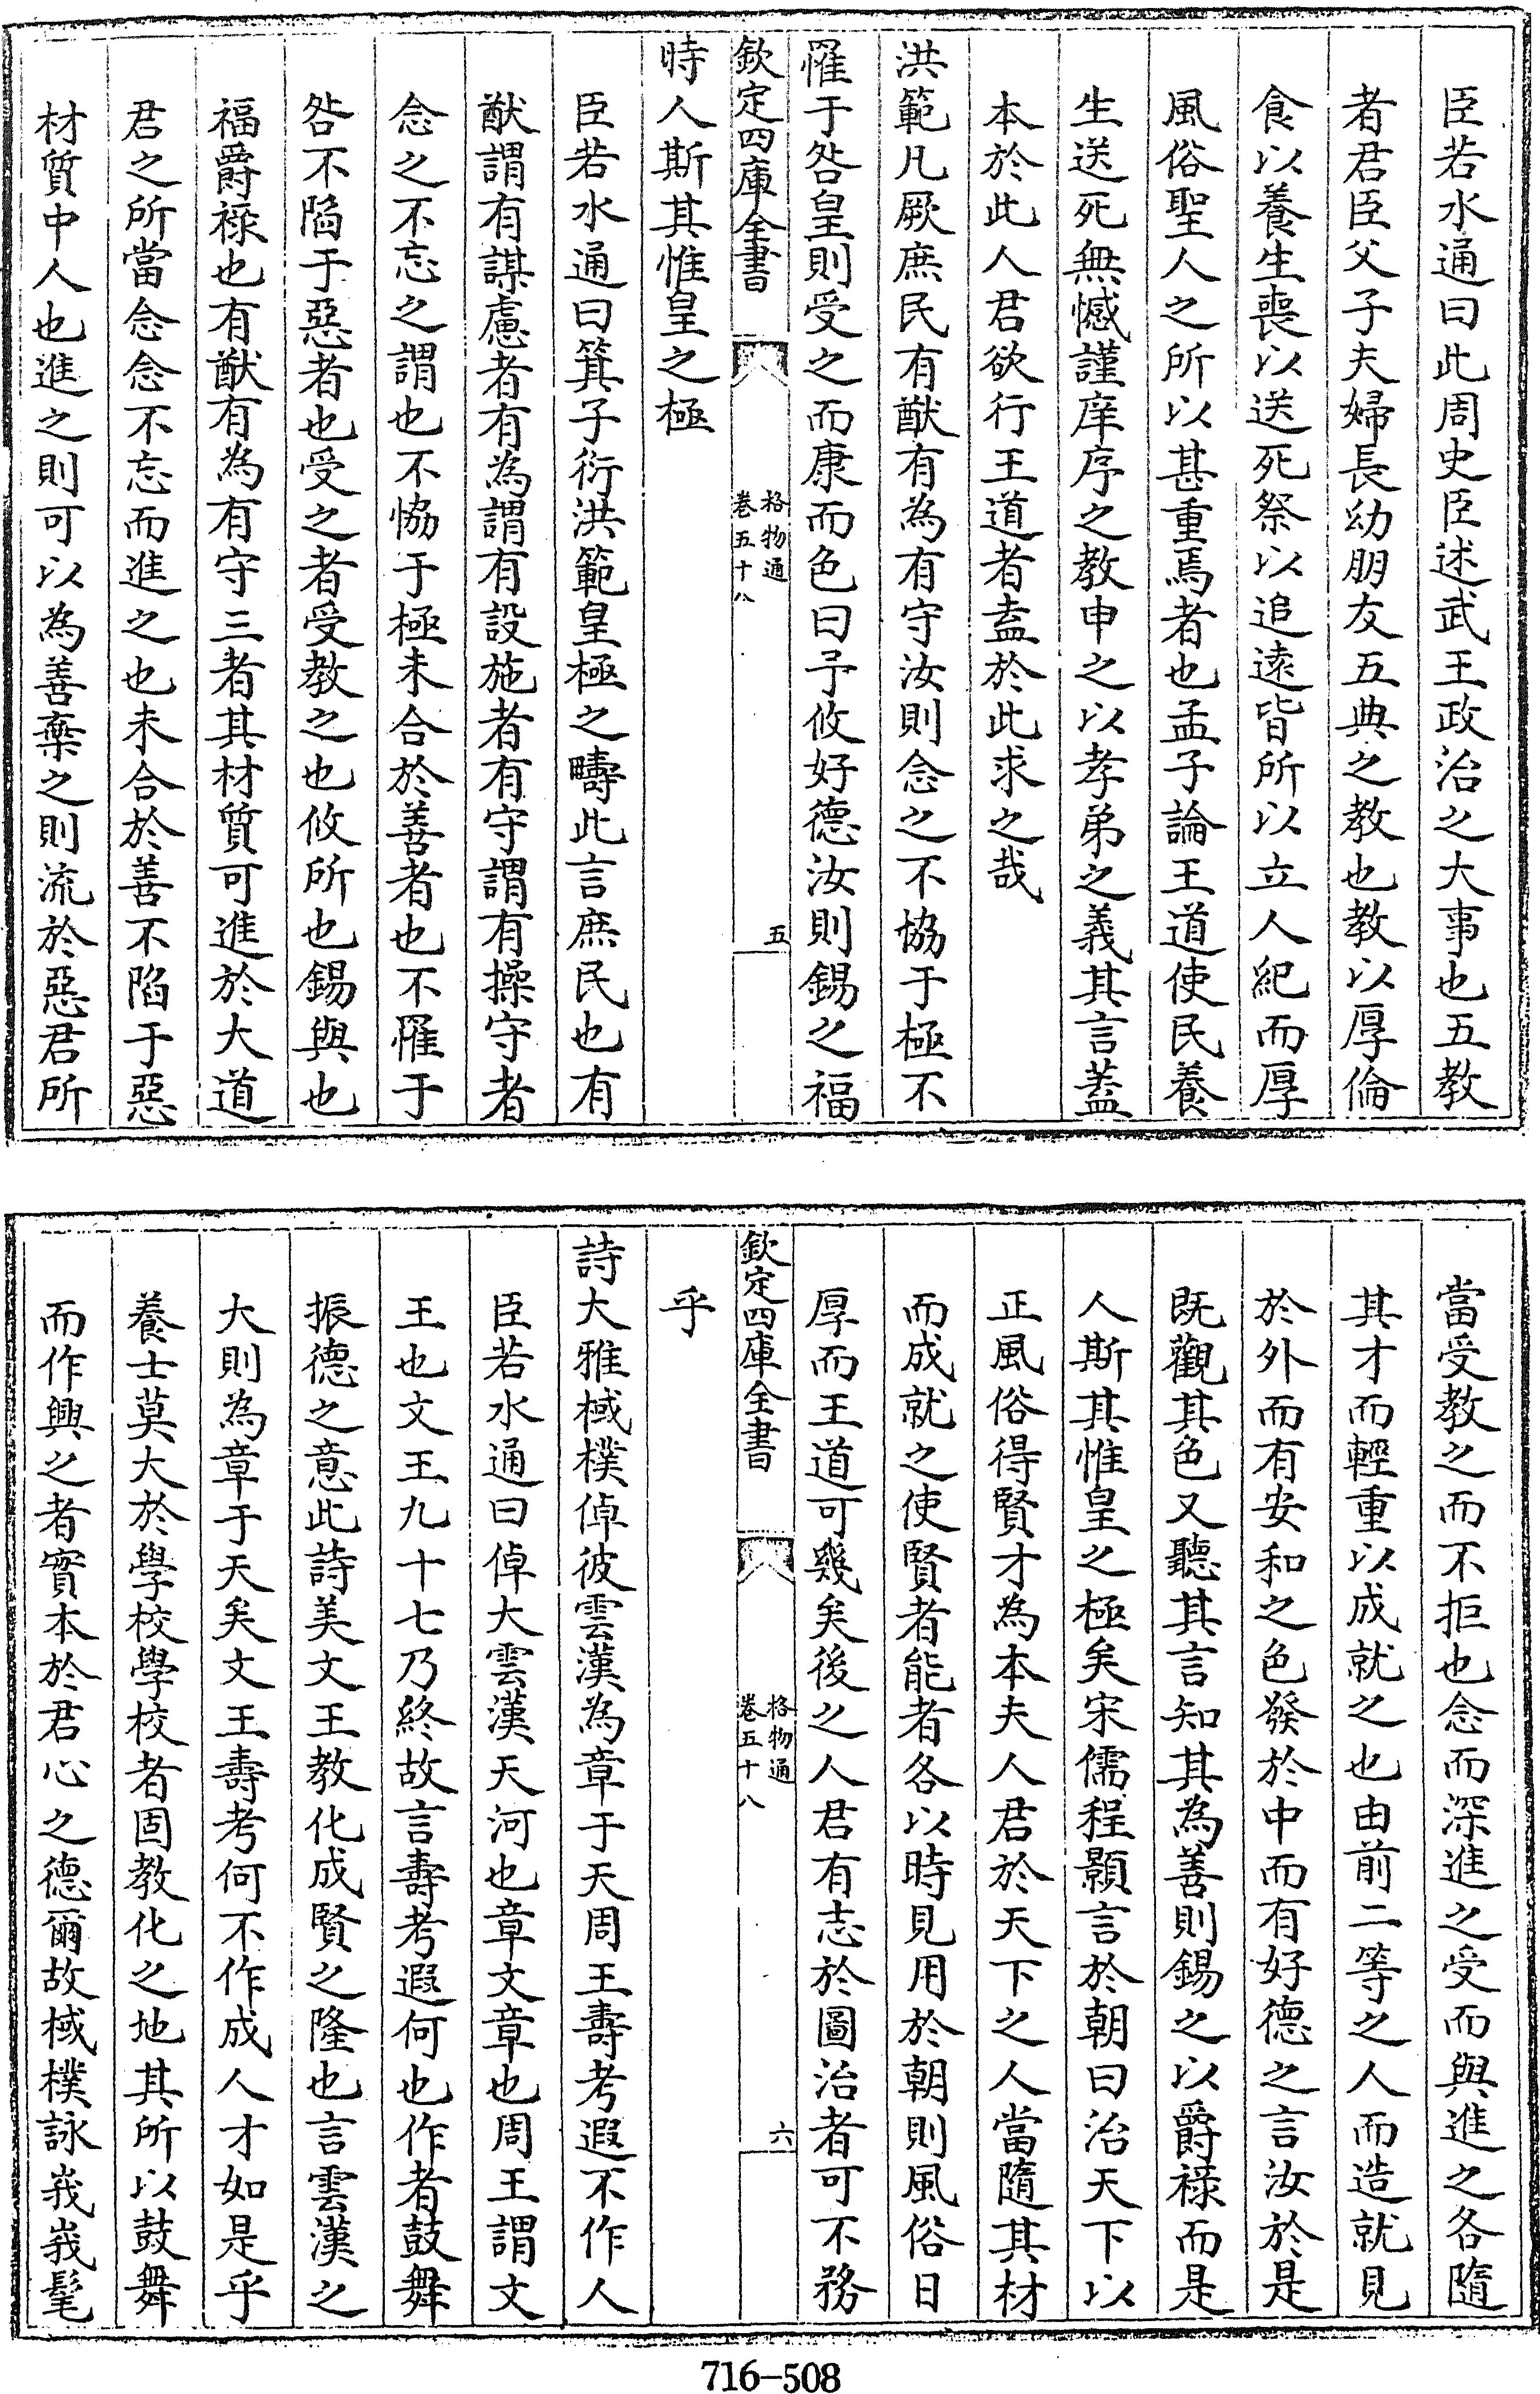 臣若水通曰此周史臣述武王政治之大事也五教
者君臣父子夫婦長幼朋友五典之教也教以厚倫
食以養生喪以送死祭以追遠皆所以立人紀而厚
風俗聖人之所以甚重焉者也孟子論王道使民養
生送死無憾謹庠序之教申之以孝弟之義其言蓋
本於此人君欲行王道者盍於此求之哉
洪範凡厥庶民有猷有為有守汝則念之不協于極不
罹于咎皇則受之而康而色曰予攸好德汝則錫之福
欽定四庫全書
格物通
卷五十八
五
時人斯其惟皇之極
臣若水通曰箕子衍洪範皇極之疇此言庶民也有
猷謂有謀慮者有為謂有設施者有守謂有操守者
念之不忘之謂也不恊于極未合於善者也不罹于
咎不陷于惡者也受之者受教之也攸所也錫與也
福爵祿也有猷有為有守三者其材質可進於大道
君之所當念念不忘而進之也未合於善不陷于惡
材質中人也進之則可以為善棄之則流於惡君所
當受教之而不拒也念而深進之受而與進之各隨
其才而輕重以成就之也由前二等之人而造就見
於外而有安和之色發於中而有好德之言汝於是
既觀其色又聽其言知其為善則錫之以爵祿而是
人斯其惟皇之極矣宋儒程顥言於朝曰治天下以
正風俗得賢才為本夫人君於天下之人當隨其材
而成就之使賢者能者各以時見用於朝則風俗日
厚而王道可幾矣後之人君有志於圖治者可不務
欽定四庫全書
格物通
卷五十八
六
乎
詩大雅棫樸倬彼雲漢為章于天周王壽考遐不作人
臣若水通曰倬大雲漢天河也章文章也周王謂文
王也文王九十七乃終故言壽考遐何也作者鼓舞
振德之意此詩美文王教化成賢之隆也言雲漢之
大則為章于天矣文王壽考何不作成人才如是乎
養士莫大於學校學校者固教化之地其所以鼓舞
而作興之者實本於君心之德爾故棫樸詠峩峩髦
716-508